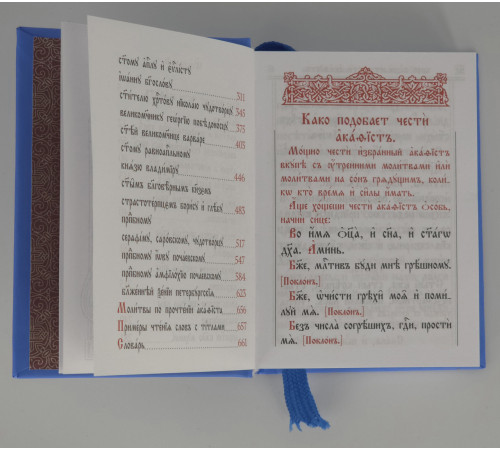 стому а҆пⷭ҇лу и҆ є҆ѵⷢ҇лісту
і҆ѡанну бг҃ослову
511
ст҃ителю хрⷭ҇тову николаю чꙋдотворцу 545
великомч҃нику геѡргію побѣдоносцу 575
ст҃ѣй великомч҃нице варваре 405
ст҃ому равноап҃льному
кнѧзю владиміру 446
ст҃ымъ бл҃говѣрнымъ кнѧземъ
страстотерпцемъ борису и҆ глѣбу 483
прпⷣбному
серафіму, саровскому, чꙋдотворцу 517
прпⷣбному і҆ѡву почаевскому 547
прпⷣбному а҆мфілохію почаевскому 584
бл҃женнѣй ѯеніи петербургскія 623
Молитвы по прочтеніи а҆каѳіста 656
Примѣры чтенїѧ словъ с титлами 657
Словарь 661
Како подобает чести
а҆каѳі́стъ.
Мощно чести и҆збранный а҆каѳістъ
вкупѣ съ оу҆тренними молитвами и҆ли
молитвами на сон грѧдущим, коли-
кѡ кто времѧ и҆ силы и҆мать.
Аще хощеши чести а҆каѳістъ ѻ҆собь,
начни сице:
Во и҆мѧ ѻ҆ц҃а, и҆ сн҃а, и҆ ст҃агѡ
дх҃а. А҆минь.
Бж҃е, млⷭ҇тивъ буди мнѣ грѣшному.
[Поклон.]
Бж҃е, ѡ҆чисти грѣхи моѧ и҆ поми-
луй мѧ. [Поклон.]
Безъ числа согрѣшихъ, гдⷭ҇и, прости
мѧ. [Поклон.]